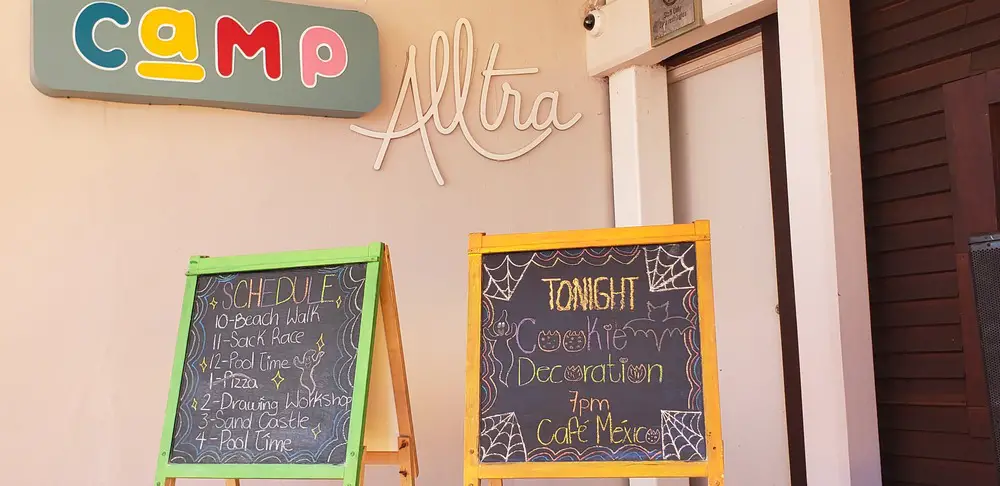 camp
Alltra
SCHEDULE
10-Beach Walk
11-Sack Race
12-Pool Time
1-Pizza
2-Drawing Workshop
3-Sand Castle
4-Pool Time
TONIGHT
Cookie
Decoration
7pm
Café México